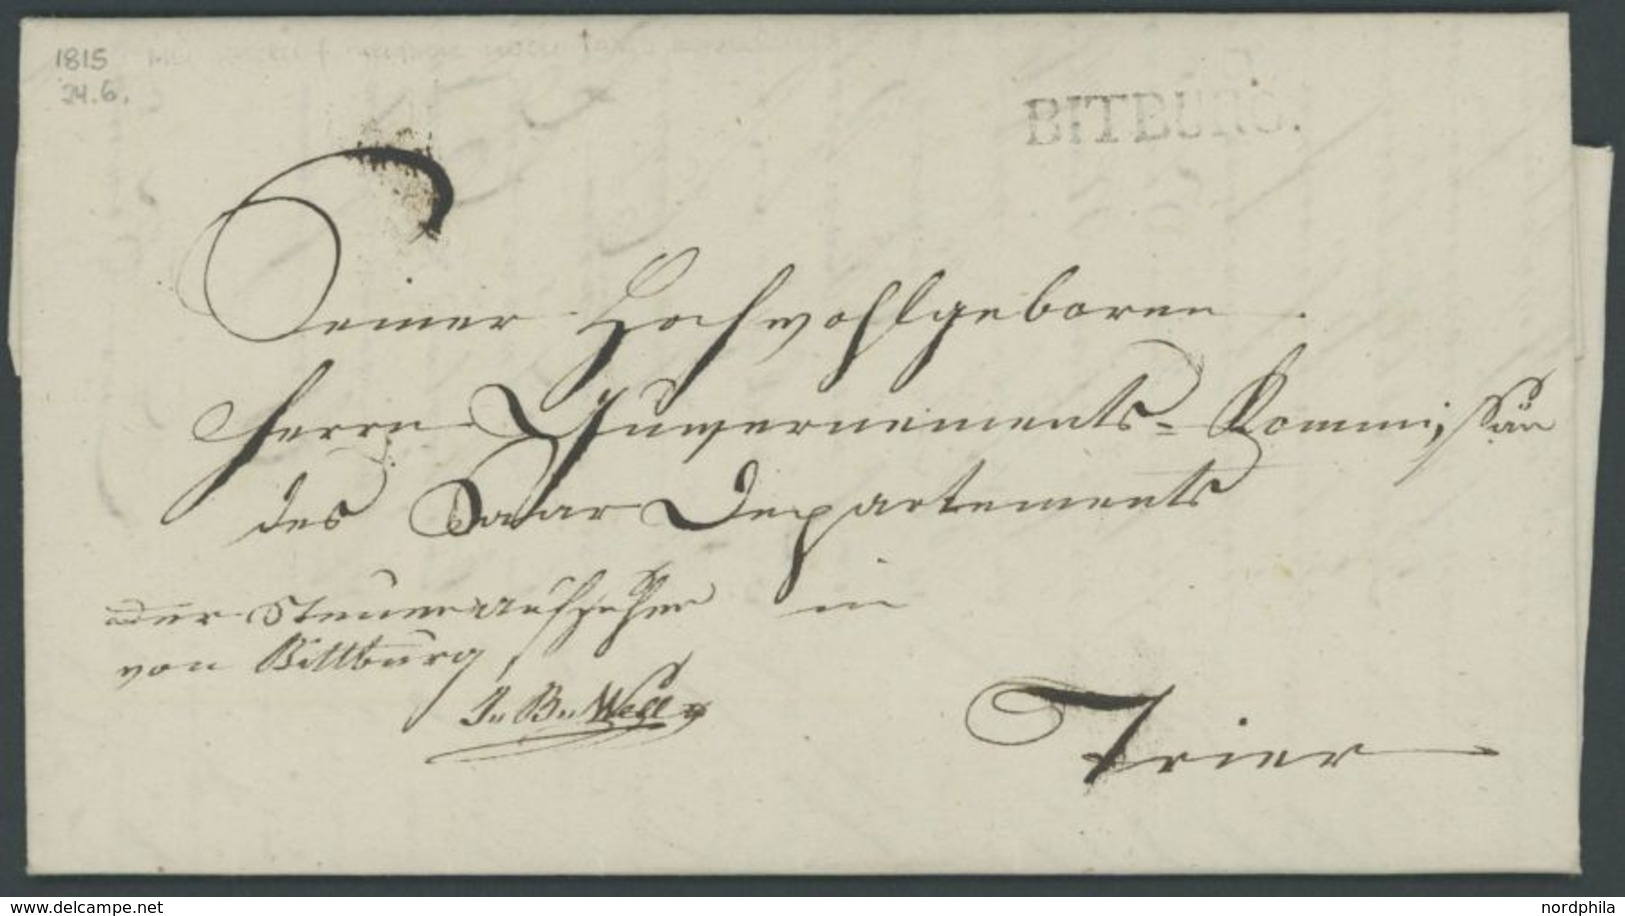 1815
24.6.
BITBURG.
Seiner Hochwohlgeboren
Herrn Guwernements-Kommissär
des Saar Departements
der Steueraufseher in
von Bittburg,
J. B. Well
Trier
www.delcampe.net
nordphila